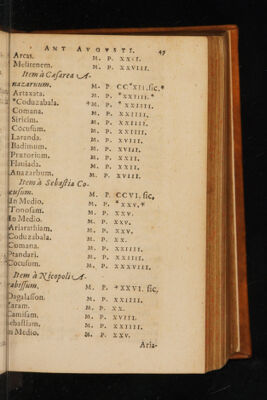 ANT AVGVSTI. 45
Arcas. M. P. XXVI.
Melitenem. M. P. XXVIII.
Item à Cæsarea A-
nazarbum. M. P. CC*XII. sic.
Artaxata. M. P. *XXIIII.*
*Coduzabala. *M. P. *XXIIII.
Comana. M. P. XXIIII.
Siricim. M. P. XXIIII.
Cocusum. M. P. XXIIII.
Laranda. M. P. XVIII.
Badimum. M. P. XVIII.
Prætorium. M. P. XXII.
Flauiada. M. P. XXII.
Anazarbum. M. P. XVIII.
Item à Sebastia Co-
cusum. M. P. CCVI. sic.
In Medio. M. P. *XXV.*
Tonosam. M. P. XXV.
In Medio. M. P. XXV.
Ariarathiam. M. P. XXV.
Coduzabala. M. P. XX.
Comana. M. P. XXIIII.
Ptandari. M. P. XXIIII.
Cocusum. M. P. XXXVIII.
Item à Nicopoli A-
rabissum. M. P. *XXVI. sic.
Dagalasson. M. P. XXIIII.
Zaram. M. P. XX.
Camisam. M. P. XVIII.
Sebastiam. M. P. XXIIII.
In Medio. M. P. XXV.
Aria-